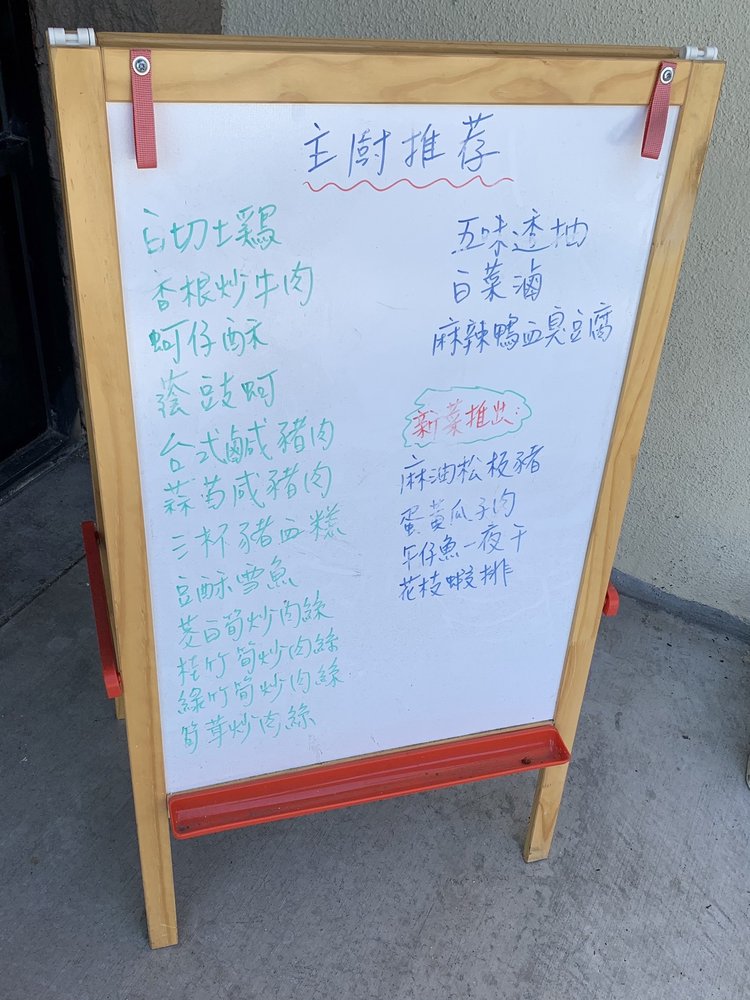 主廚推荐
白切土鷄
香根炒牛肉
蚵仔酥
蔭豆豉蚵
台式鹹豬肉
蒜苗咸豬肉
三杯豬血糕
豆酥雪魚
茭白筍炒肉絲
桂竹筍炒肉絲
綠竹筍炒肉絲
筍茸炒肉絲
五味透抽
白菜滷
麻辣鴨血臭豆腐
新菜推出:
麻油松板豬
蛋黃瓜子肉
午仔魚一夜干
花枝蝦排